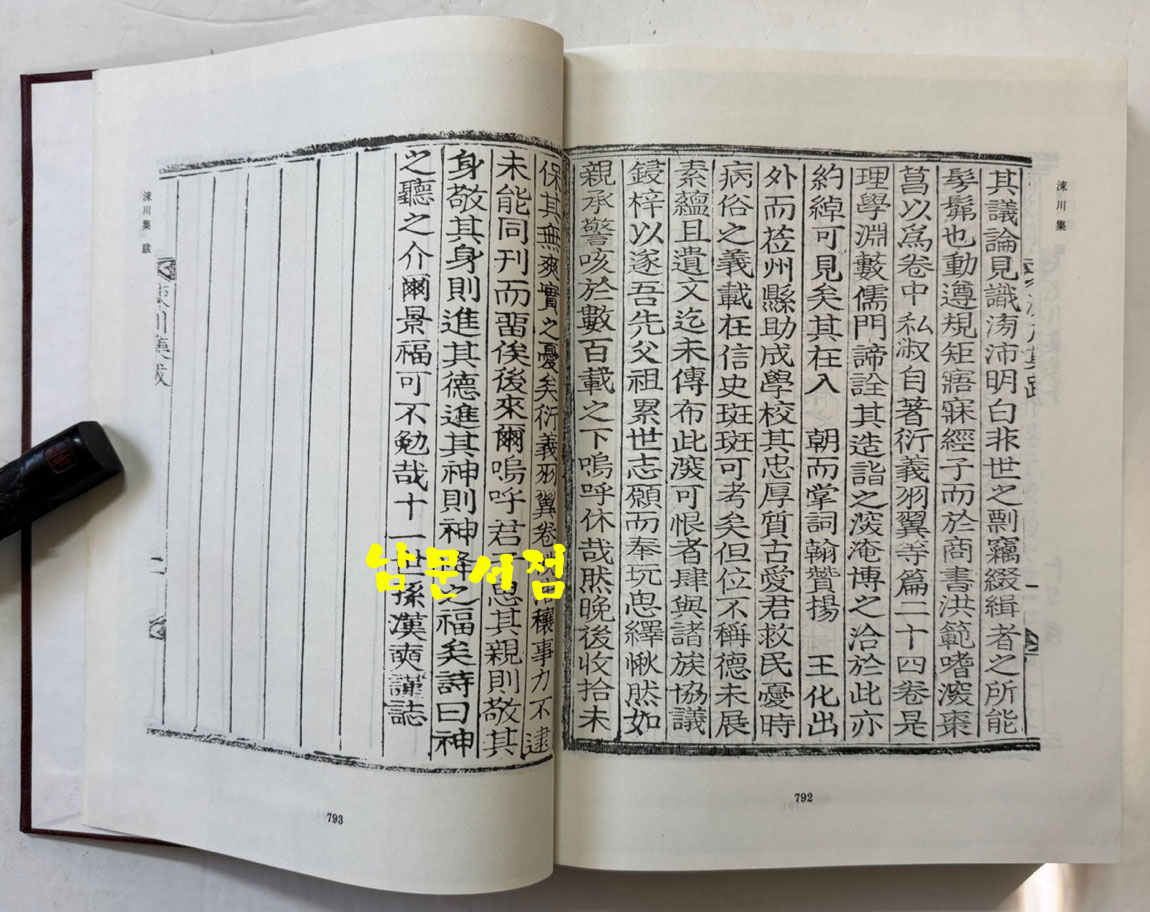 涑川集
其議論見識滂沛明白非世之剽竊綴緝者之所能
髣髴也動遵規矩寤寐經子而於商書洪範嗜深棗
菖以爲卷中私淑自著衍義羽翼等篇二十四卷是
理學淵藪儒門諦詮其造詣之深淹博之洽於此亦
約綽可見矣其在入 朝而掌詞翰贊揚 王化出
外而莅州縣助成學校其忠厚質古愛君救民憂時
病俗之義載在信史斑斑可考矣但位不稱德未展
素蘊且遺文迄未傳布此深可恨者肆與諸族協議
鋟梓以遂吾先父祖累世志願而奉玩思繹愀然如
親承警咳於數百載之下嗚呼休哉然晚後收拾未
792
保其無爽實之憂矣衍義羽翼卷穰事力不逮
未能同刊而留俟後來爾嗚呼君思其親則敬其
身敬其身則進其德進其神則神降之福矣詩曰神
之聽之介爾景福可不勉哉十一世孫漢奭謹誌
涑川集跋
涑川集 跋
793
남문서점